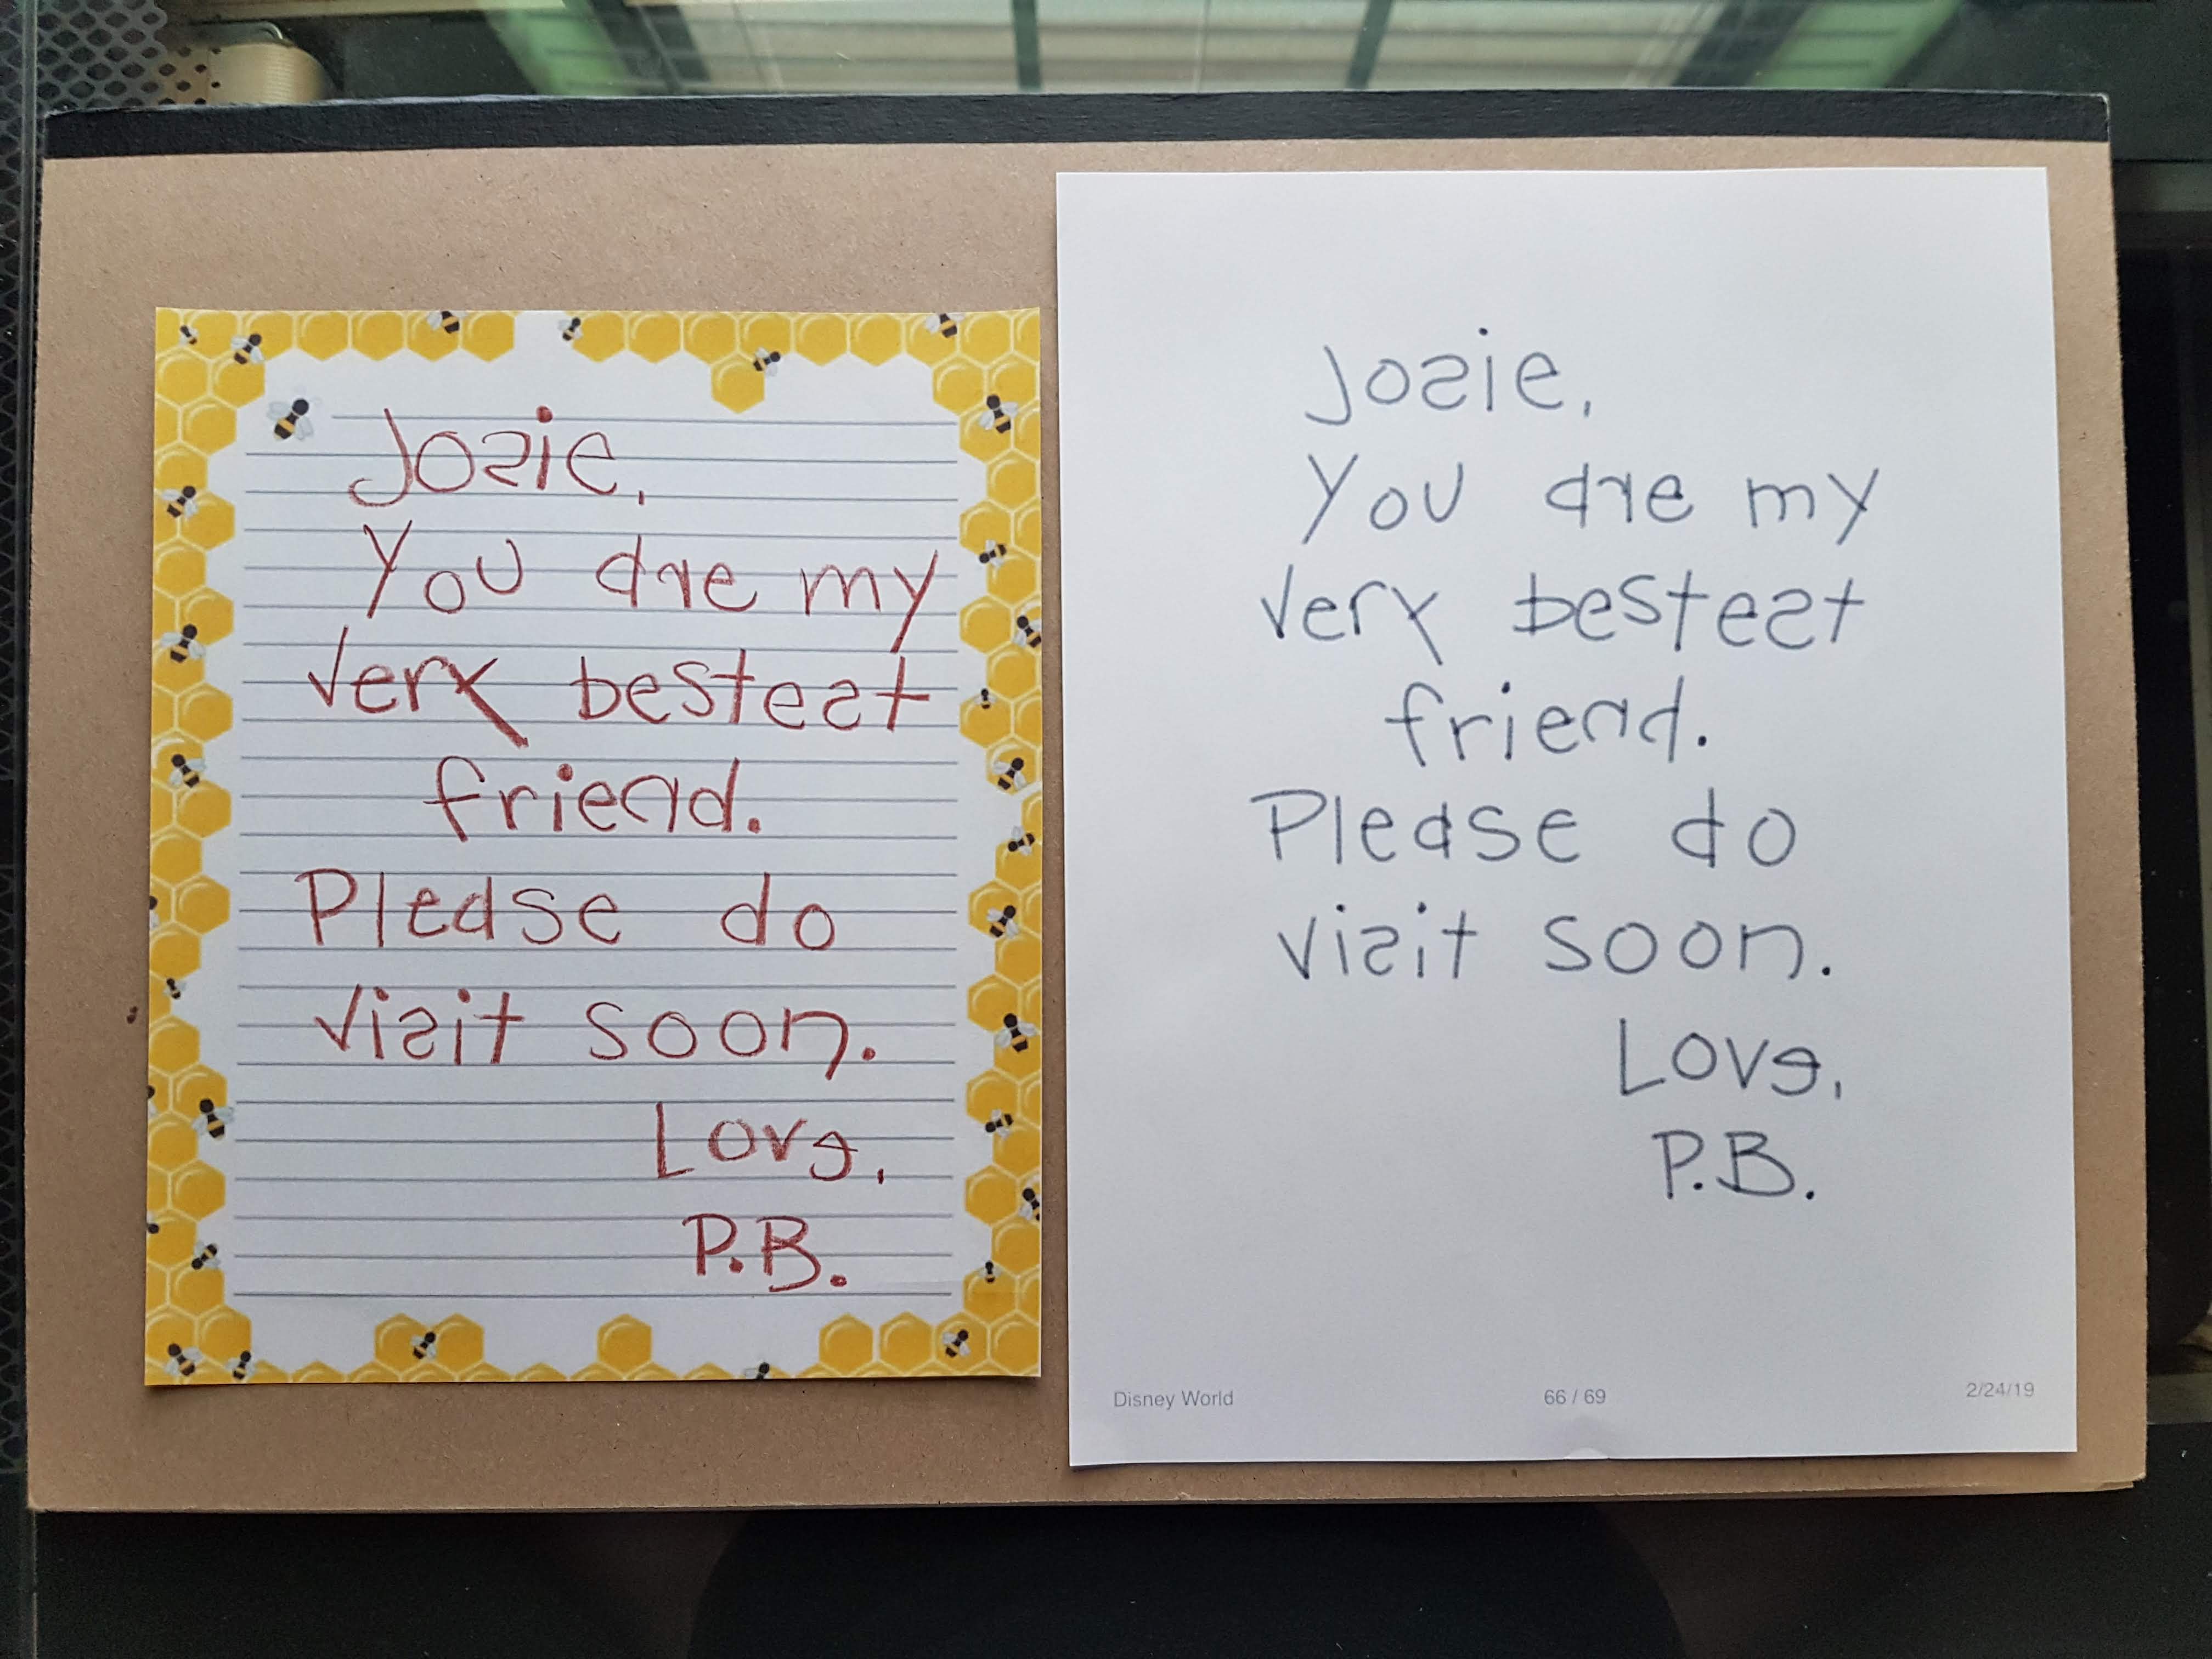 Josie,
You are my
very bestest
friend.
Please do
visit soon.
Love,
P.B.
Josie,
You are my
very bestest
friend.
Please do
visit soon.
Love,
P.B.
Disney World 66 / 69 2/24/19